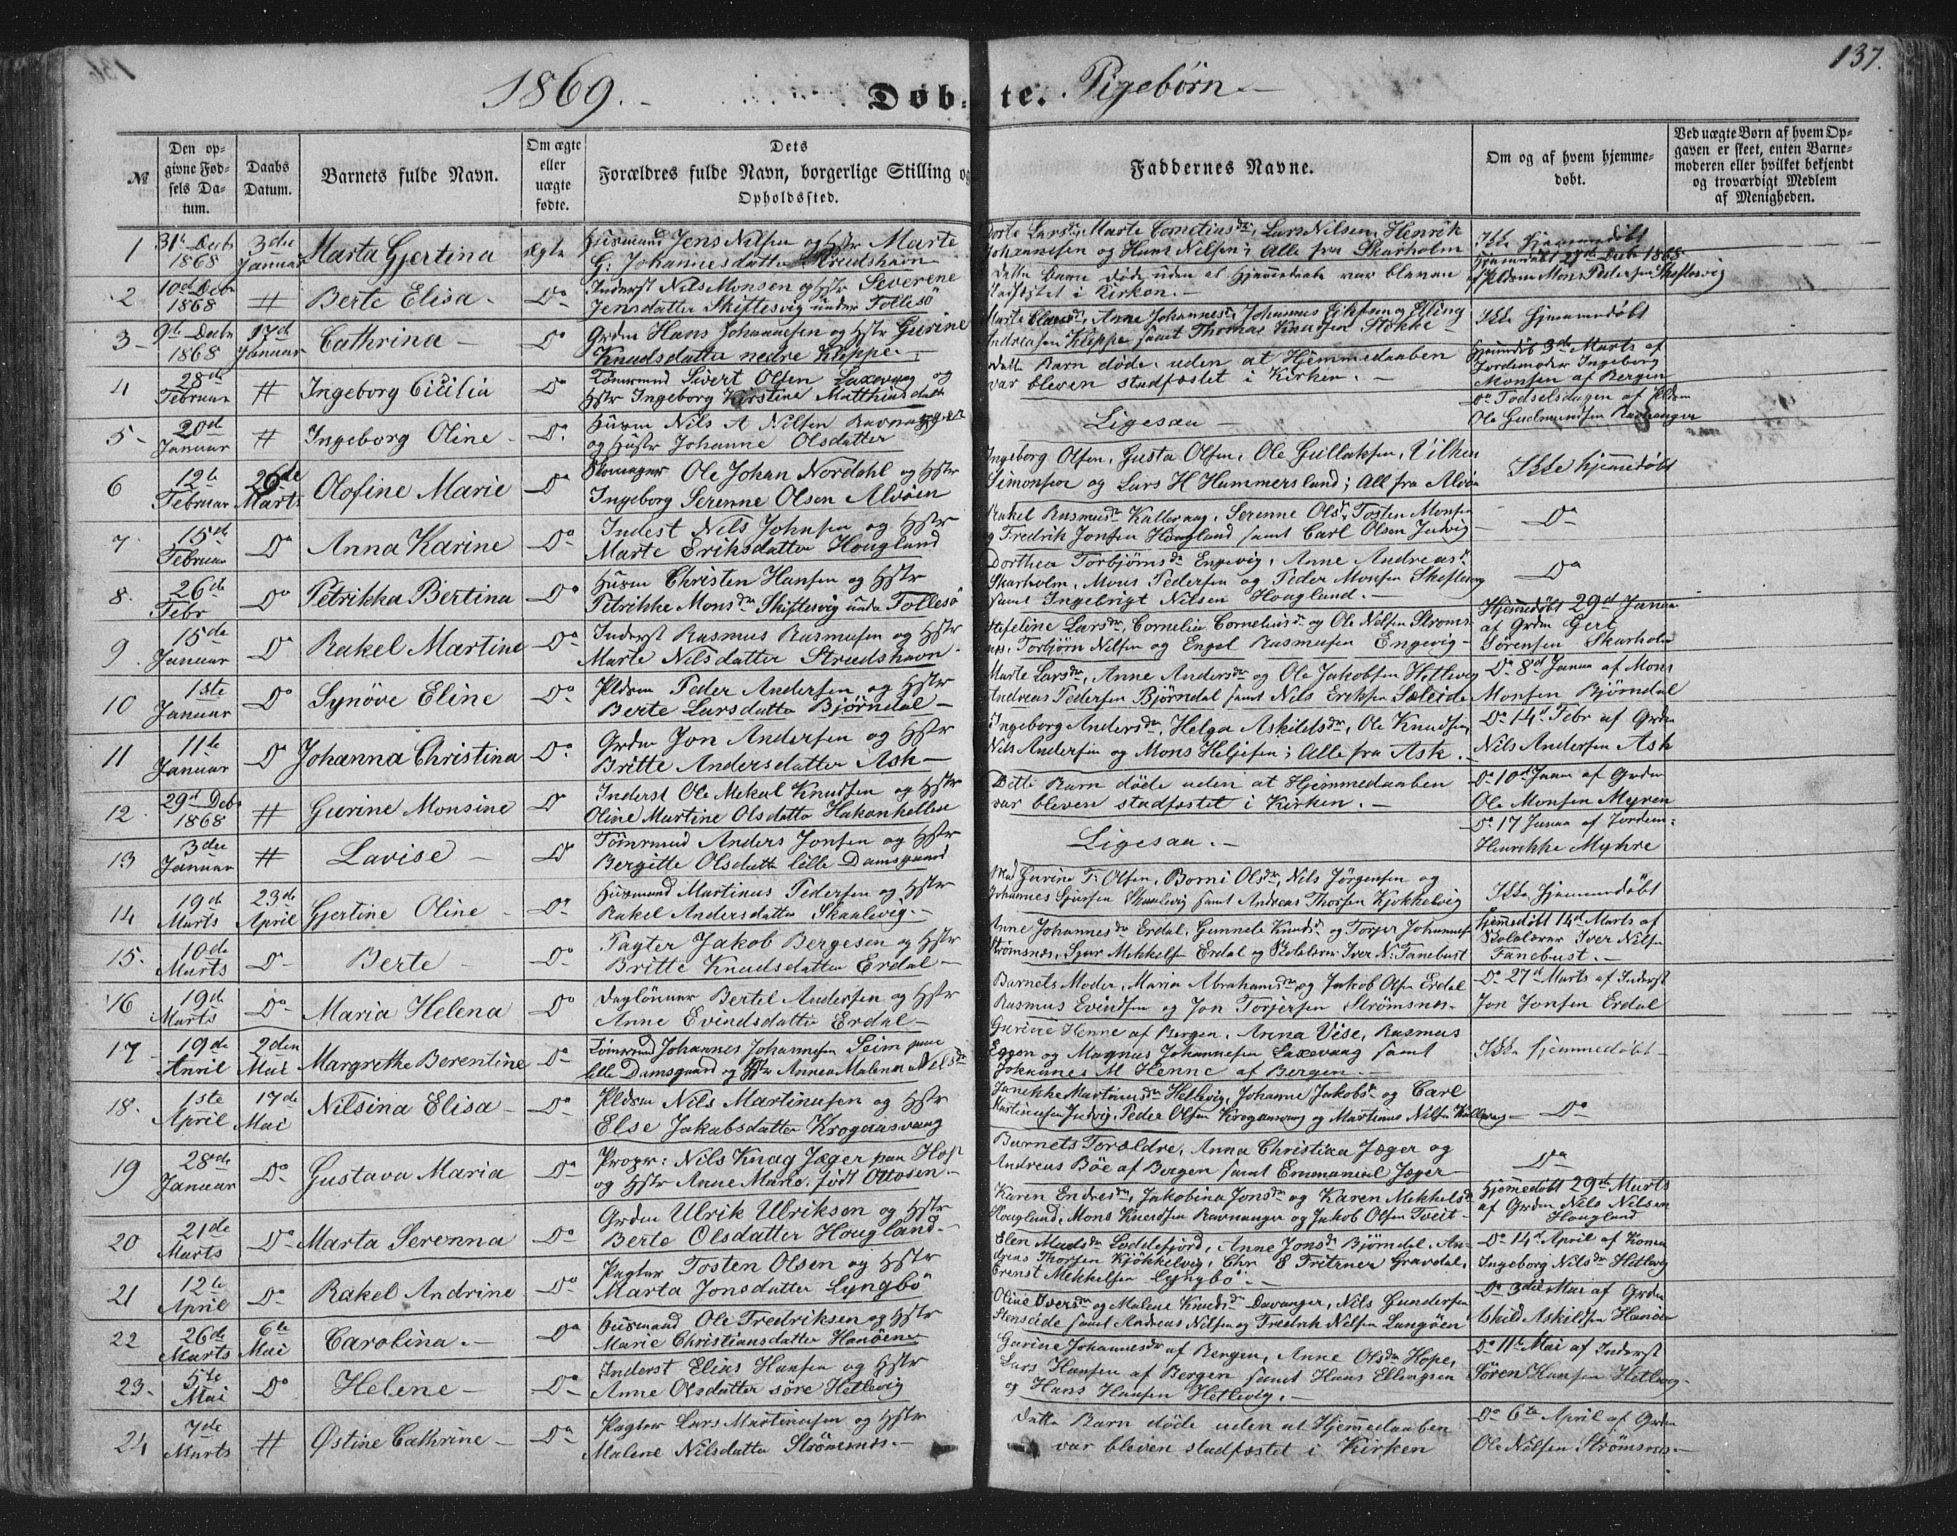 1869.
Døb-te. Pigebørn.
137.
№
Den opgivne Fødsels Datum.
Daabs Datum.
Barnets fulde Navn.
Om ægte eller uægte fødte.
Dets Forældres fulde Navn, borgerlige Stilling og Opholdssted.
Faddernes Navne.
Om og af hvem hjemmedøbt.
Ved uægte Børn af hvem Opgaven er skeet, enten Barnemoderen eller hvilket bekjendt og troværdigt Medlem af Menigheden.
1 31te Decbr 1868 3die Januar Marta Gjertina ægte Huusmand Jens Nilsen og Hstr Marte G: Johannesdatter Strudshavn
Dorte Larsdr, Marte Cornelius dr, Lars Nilsen, Henrik Johannesen og Hans Nilsen; Alle fra Skarholm
Ikke hjemmedøbt
2 10de Decbr 1868 # Berte Elisa Do Inderst Nils Monsen og Hstr Severene Jensdatter Skiftesvig under Follesø
Dette Barn døde uden at Hjemmedaab var bleven stadfæstet i Kirken.
Hjemmedøbt 28de Decbr 1868 af Pldsm Mons Pedersen Skiftesvig
3 9de Decbr 1868 17de Januar Cathrina Do Grdm Hans Johannesen og Hstr Gurine Knudsdatter nedre Kleppe
Marte Clausdr, Anne Johannesdr, Johannes Eilefsen og Elling Andreasen Kleppe samt Thomas Knudsen Stokke
Ikke hjemmedøbt
4 28de Februar # Ingeborg Cicilia Do Tømrmand Sivert Olsen Laxevaag og Hstr Ingeborg Kirstine Matthiasdatter
Dette Barn døde uden at Hjemmedaaben var bleven stadfæstet i Kirken.
Hjemmdøbt 3de Marts af Jordemoder Ingeborg Monsen af Bergen
5 20de Januar # Ingeborg Oline Do Husm Nils A Nilsen Ravnanger og Hustr Johanne Olsdatter
Ligesaa
Do Fødselsdagen af Pldsm Ole Gudmundsen Ravnanger
6 12te Februar 26de Marts Olofine Marie Do Skomager Ole Johan Nordahl og Hstr Ingeborg Serenne Olsen Alvøen
Ingeborg Olsen, Gusta Olsen, Ole Gullaksen, Vilhen Simonsen og Lars H Hammersland; All fra Alvøn
Ikke hjemmedøbt
7 15de Februar Do Anna Karine Do Indest Nils Johnsen og Hstr Marte Eriksdatter Hougland
Rakel Rasmusdr Kallevaag, Serenne Olsdr, Tosten Monsen og Fredrik Jonsen Hougland samt Carl Olsen Judvig
Do
8 26de Febr Do Petrikka Bertina Do Husm Christen Hansen og Hstr Petrikke Monsdr Skiftesvig under Follesø
Dorthea Torbjørnsdr Engevig, Anne Andreasdr Skarholm, Mons Pedersen og Peder Monsen Skiftesvig samt Ingebrigt Nilsen Hougland.
Do
9 15de Januar Do Rakel Martine Do Inderst Rasmus Rasmusen og Hstr Marte Nilsdatter Strudshavn
Stefeline Larsdr, Cornelia Corneliusdr og Ole Nilsen Strømsnes, Torbjørn Nilsen og Engel Rasmusen Engevig
Hjemmedøbt 29de Januar af Grdm Gert Sørensen Skarholm
10 1ste Januar Do Synøve Eline Do Pldsm Peder Andersen og Hstr Berte Larsdatter Bjørndal
Marte Larsdr, Anne Andersdr og Ole Jakobsen Hetlevig Andreas Pedersen Bjørndal samt Nils Eriksen Sæleide
Do 8de Januar af Mons Monsen Bjørndal
11 11te Januar Do Johanna Christina Do Grdm Jon Andersen og Hstr Britte Andersdatter Ask
Ingeborg Andersdr, Helga Askildsdr, Ole Knudsen, Nils Andersen og Mons Helgesen; Alle fra Ask.
Do 14de Febr af Grdm Nils Andersen Ask
12 29de Decbr 1868 # Gurine Monsine Do Inderst Ole Mekal Knudsen og Hstr Oline Martine Olsdatter Hakonhellen
Dette Barn døde uden at Hjemmedaaben var bleven stadfæstet i Kirken.
Do 10de Januar af Grdm Ole Monsen Myren
13 3die Januar # Lavise Do Tømrmnd Anders Jonsen og Hstr Bergitte Olsdattr lille Damsgaard
Ligesaa.
Do 17 Januar af Jordem: Henrikke Myhre
14 19de Marts 23de April Gjertine Oline Do Husmand Martinus Pedersen og Hstr Rakel Andersdatter Skaalevig
Mad Gurine F: Olsen, Borni Olsdr, Nils Jørgensen og Johannes Sjursen Skaalevig samt Andreas Thorsen Kjøkkelvig
Ikke hjemmedøbt
15 10de Marts Do Berte Do Pagter Jakob Bergesen og Hstr Britte Knudsdatter Erdal
Anne Johannesdr Erdal, Gunnele Knudsdr og Torger Johannesen Strømsnes, Sjur Mekkelsen Erdal og Skolelærer Iver N: Fanebust
Hjemmedøbt 14de Marts af Skolelærer Iver Nilsen Fanebust.
16 19de Marts Do Maria Helena Do Daglønner Bertel Andersen og Hstr Anne Evindsdatter Erdal
Barnets Moder, Maria Abrahamsdr og Jakob Olsen Erdal Rasmus Evindsen og Jon Torjersen Strømsnes
Do 27de Marts af Inderst Jon Jonsen Erdal
17 19de April 2den Mai Margrethe Berentine Do Tømrmand Johannes Johannesen Seim paa lille Damsgaard og Hstr Annea Malena Nilsdr
Guriere Henne af Bergen, Anna Vise, Rasmus Eggen og Magnus Johannesen Laxevaag samt Johannes M Henne af Bergen
Ikke hjemmedøbt
18. 1ste April 17de Mai Nilsina Elisa Do Pldsm Nils Martinusen og Hstr Else Jakobsdatter Krogaasvaag
Janekke Martinusdr Hetlevig, Johanne Jakobsdr og Carl Martinusen Judvig, Peder Olsen Krogaasvaag og Martinus Nilsen Kallevaag
Do
19 28de Januar Do Gustava Maria Do Propr: Nils Knag Jæger paa Hop og Hstr Anne Marie, født Ottosen
Barnets Forældre, Anna Christina Jæger og Andreas Bøe af Bergen samt Emmanuel Jæger
Do
20 21de Marts Do Marta Serenna Do Grdm Ulrik Ulriksen og Hstr Berte Olsdatter Hougland
Karen Endresdr, Jakobina Jonsdr og Karen Mekkelsdr Hougland, Mons Knudsen Ravnanger og Jakob Olsen Tveit
Hjemedøbt 29de Marts af Grdm Nils Nilsen Hougland
21 12te April Do Rakel Andrine Do Pagter Tosten Olsen og Hstr Marta Jonsdatter Lyngbø
Elen Madsdr Loddefjord, Anne Jonsdr Bjørndal, Andreas Thorsen Kjøkkelvig, Chr E Fritzner Gravdal, Ernst Mekkelsen Lyngbø
Do 14de April af Konen Ingeborg Nilsdr Hetlevig
22 26de Marts 6te Mai Carolina Do Husmand Ole Fredriksen og Hstr Marie Christiansdatter Hanøene
Oline Iversdr og Malene Knudsdr Davanger, Nils Gundersen Steinseide samt Andreas Nilsen og Fredrik Nilsen Langøen
Do 3die Mai af Grdm Askild Askildsen Hanøen
23 5te Mai Do Helene Do Inderst Elias Hansen og Hstr Anne Olsdatter søre Hetlevig
Gurine Johannesdr af Bergen, Anne Olsdr Hope, Lars Hansen af Bergen samt Hans Ellingsen og Hans Hansen Hetlevig.
Do 11te Mai af Inderst Søren Hansen Hetlevig
24 7de Marts # Østine Cathrine Do Pagter Lars Martinusen og Hstr Malene Nilsdatter Strømsnes
Dette Barn døde uden at Hjemmedaaben var bleven stadfæstet i Kirken
Do 6te April af Grdm Ole Nilsen Strømsnes